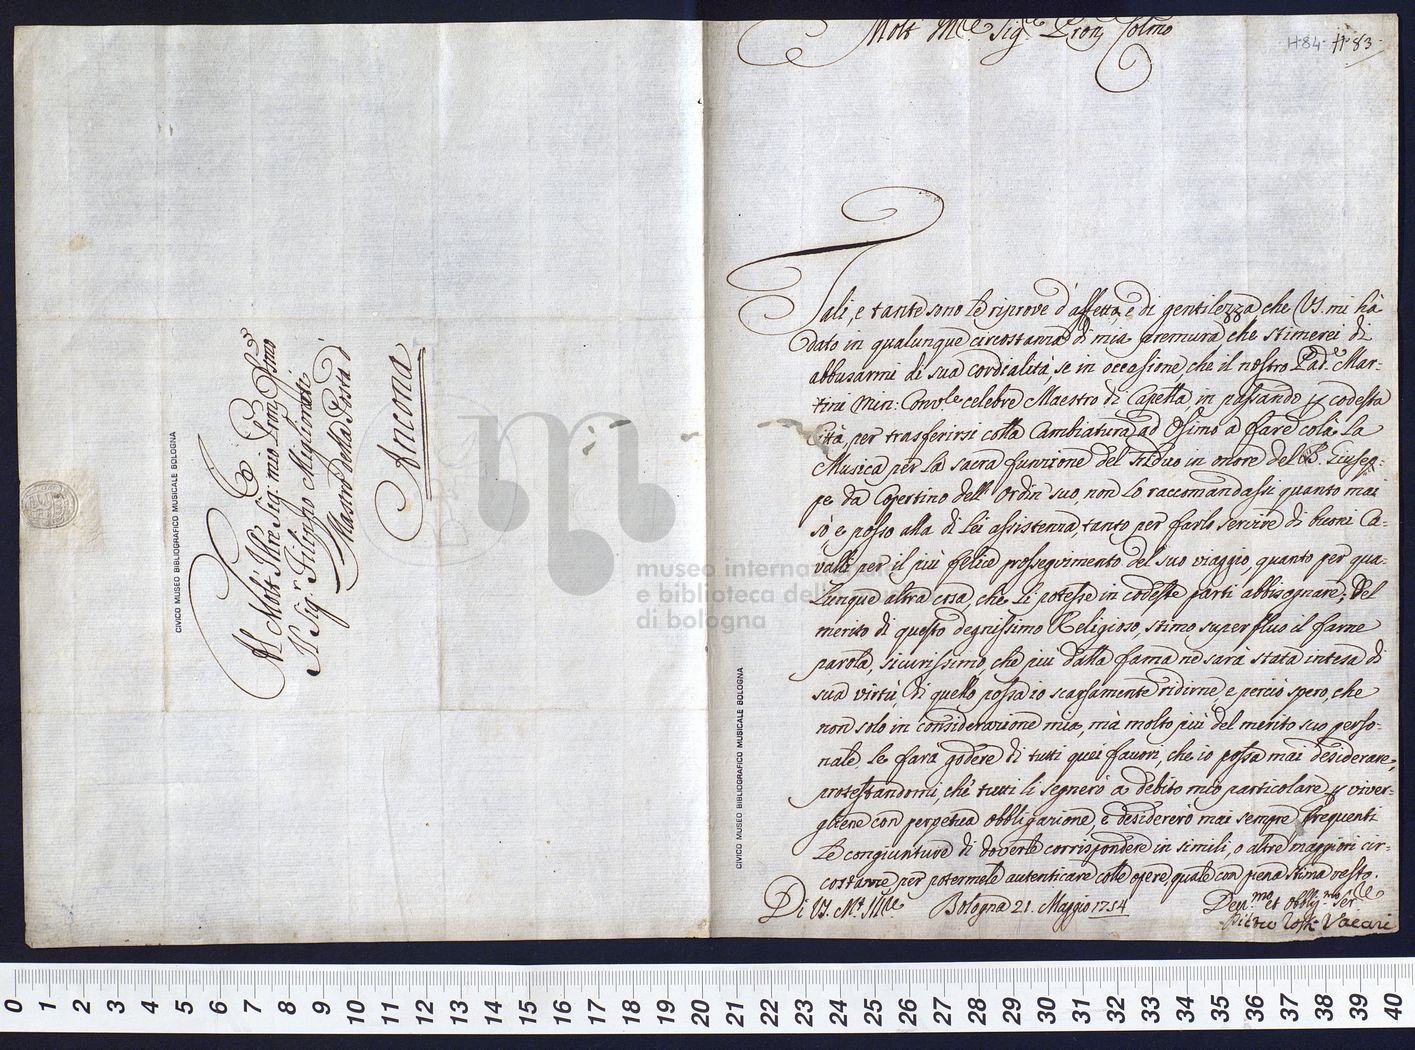 Al Molt' Illre Sig: mio Pron Osmo
Il Sig.r Filippo Miglionati
Mastro della Posta d
Ancona
CIVICO MUSEO BIBLIOGRAFICO MUSICALE BOLOGNA
Molt' Ill.e Sig.re Pron Colmo
H84. H.83
Tali, e tante sono le riprove d'affetto, e di gentilezza che VS. mi hà
dato in qualunque circostanza di mia premura, che stimerei di
abbusarmi di sua cordialità, se in occasione, che il nostro Pad.e Mar-
tini Min: Conv.le celebre Maestro di Capella, in passando p codesta
Città, per trasferirsi colla Cambiatura ad Osimo a fare colà la
Musica per la sacra funzione del Triduo in onore del B. Giusep-
pe da Copertino dell' Ordin suo non lo raccomandassi quanto mai
sò, e posso alla di Lei assistenza, tanto per farlo servire di buoni Ca-
valli per il più felice proseguimento del suo viaggio, quanto per qua-
lunque altra cosa, che li potesse in codeste parti abbisognare; Del
merito di questo degnissimo Religioso, stimo superfluo il farne
parola, sicurissimo, che più dalla fama ne sarà stata intesa di
sua virtù, di quello possa io scarsamente ridirne, e perciò spero, che
non solo in considerazione mia, mà molto più del merito suo perso-
nale le farà godere di tutti quei favori, che io possa mai desiderare,
protestandomi, che tutti li segnerò a debito mio particolare p viver-
gliene con perpetua obbligazione, e desidererò mai sempre frequenti
le congiunture di doverle corrispondere in simili, o altre maggiori cir-
costanze per potermele autenticare colle opere, quale con piena stima resto.
Di VS. M.t Ill.e Bologna 21. Maggio 1754
Dev.mo et obblig.mo Ser.e
Pietro Vacari
CIVICO MUSEO BIBLIOGRAFICO MUSICALE BOLOGNA
museo internazionale
e biblioteca della
di bologna
0 1 2 3 4 5 6 7 8 9 10 11 12 13 14 15 16 17 18 19 20 21 22 23 24 25 26 27 28 29 30 31 32 33 34 35 36 37 38 39 40